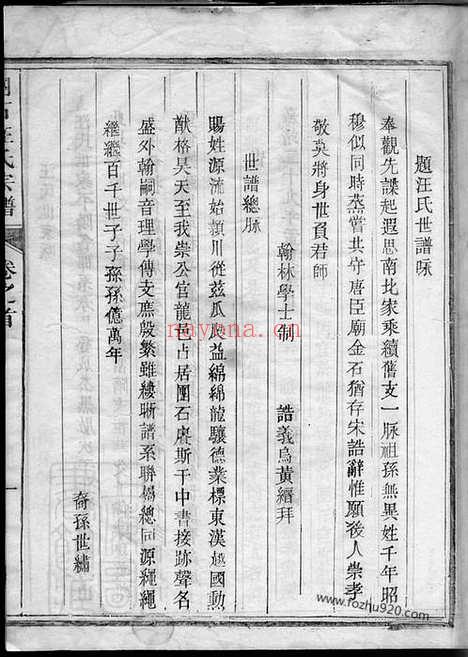 題汪氏世譜咏
奉觀先諜起遐思南北家乘續舊支一脉祖孫無異姓千年昭
穆似同時烝嘗共守唐臣廟金石猶存宋誥辭惟願後人崇孝
敬英將身世負君師
翰林學士制誥義烏黃縉拜
世譜總脉
賜姓源流始潁川從茲瓜瓞益綿綿龍驤德業標東漢越國勳
猷格昊天至我崇公官龍邑占居團石賡斯干中書接跡聲名
盛外翰嗣音理學傳支應殷繁雖縷晰譜系聯屬總同源繩繩
繼繼百千世子子孫孫億萬年
裔孫世繡
石汪氏宗譜
卷之首
一
nayona.cn
www.fozhu920.com